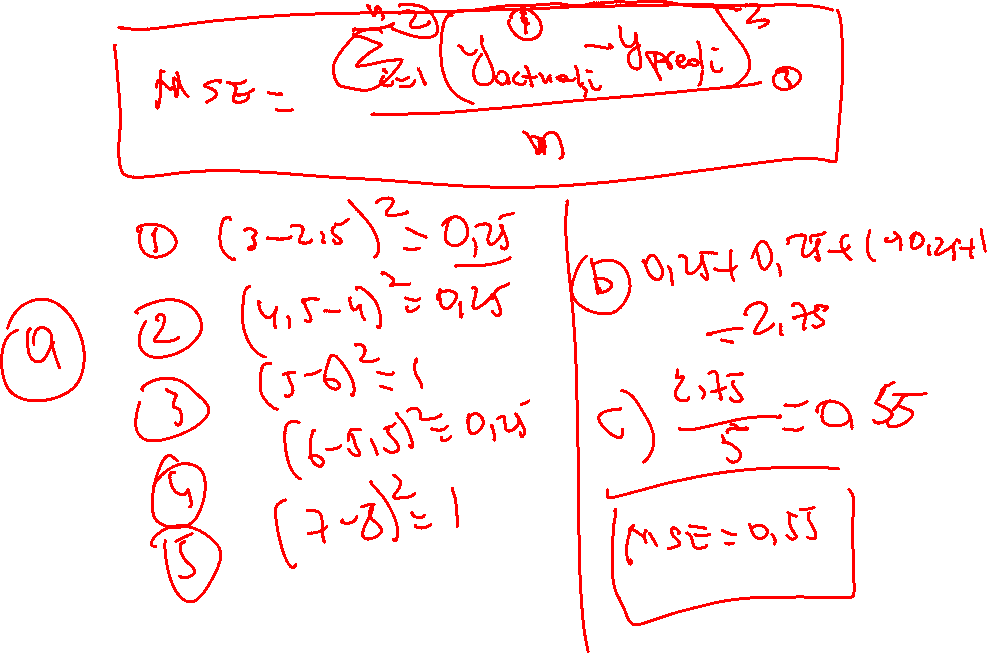 MSE = ② Σ n i=1 ( ① y actual i - y pred i )² ③
n
a
① (3-2,5)² = 0,25
② (4,5-4)² = 0,25
③ (5-6)² = 1
④ (6-5,5)² = 0,25
⑤ (7-8)² = 1
b 0,25+0,25+1+0,25+1
= 2,75
c) 2,75
5 = 0,55
MSE = 0,55